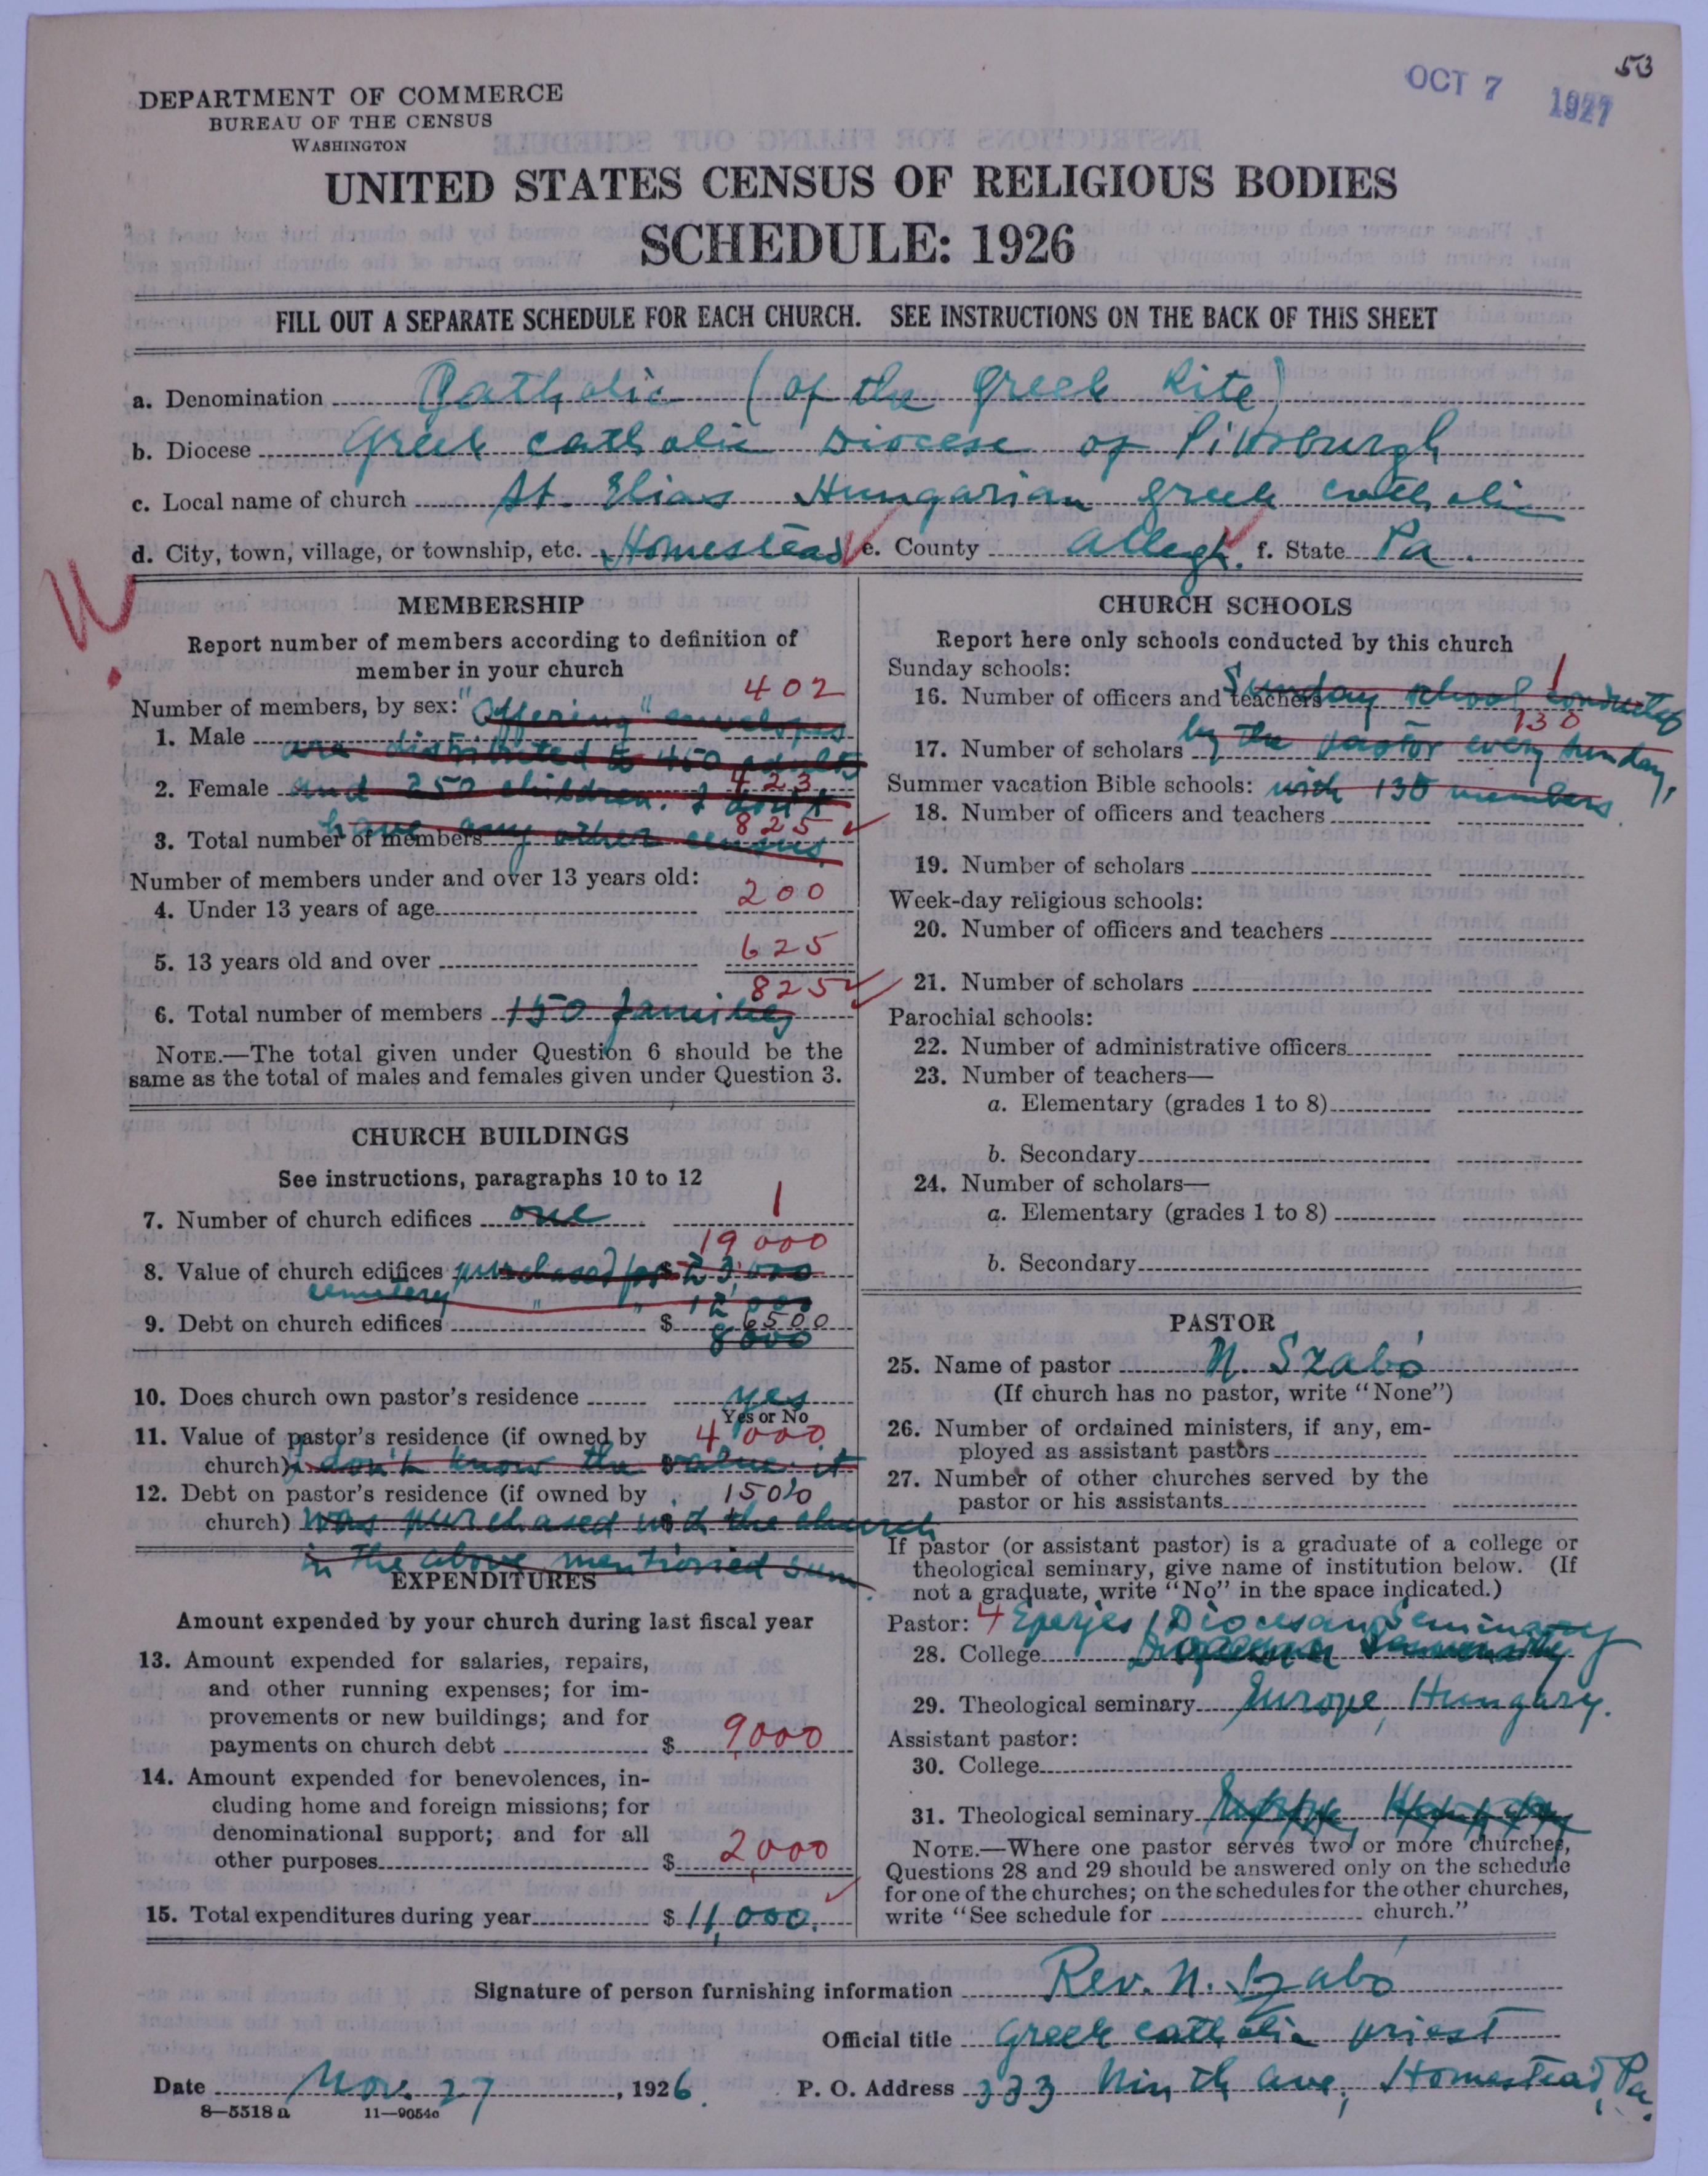 53
OCT 7 1927
DEPARTMENT OF COMMERCE
BUREAU OF THE CENSUS
WASHINGTON
UNITED STATES CENSUS OF RELIGIOUS BODIES
SCHEDULE: 1926
FILL OUT A SEPARATE SCHEDULE FOR EACH CHURCH. SEE INSTRUCTIONS ON THE BACK OF THIS SHEET
a. Denomination Catholic (of the Greek Rite)
b. Diocese Greek Catholic Diocese of Pittsburgh
c. Local name of church St. Elias Hungarian Greek Catholic
d. City, town, village, or township, etc. Homestead e. County Allegh. f. State Pa.
MEMBERSHIP
Report number of members according to definition of
member in your church
402
Number of members, by sex: "Offering" envelopes
1. Male are distributed to 450 adults
423
2. Female and 250 children. I don't
825
3. Total number of members have any other census.
Number of members under and over 13 years old:
4. Under 13 years of age 200
5. 13 years old and over 625
825
6. Total number of members 150 families
NOTE.—The total given under Question 6 should be the
same as the total of males and females given under Question 3.
CHURCH BUILDINGS
See instructions, paragraphs 10 to 12
7. Number of church edifices one 1
19000
8. Value of church edifices purchased for $ 23,000
cemetery " " 12000
9. Debt on church edifices $ 6500
8000
10. Does church own pastor's residence yes
Yes or No
11. Value of pastor's residence (if owned by 4000
church) I don't know the value, it
12. Debt on pastor's residence (if owned by 1500
church) was purchased with the church
in the above mentioned sum.
EXPENDITURES
Amount expended by your church during last fiscal year
13. Amount expended for salaries, repairs,
and other running expenses; for im-
provements or new buildings; and for
payments on church debt $ 9000
14. Amount expended for benevolences, in-
cluding home and foreign missions; for
denominational support; and for all
other purposes $ 2,000
15. Total expenditures during year $ 11,000.
CHURCH SCHOOLS
Report here only schools conducted by this church
Sunday schools: 1
16. Number of officers and teachers Sunday school conducted
130
17. Number of scholars by the pastor every Sunday,
Summer vacation Bible schools: with 130 members
18. Number of officers and teachers
19. Number of scholars
Week-day religious schools:
20. Number of officers and teachers
21. Number of scholars
Parochial schools:
22. Number of administrative officers
23. Number of teachers—
a. Elementary (grades 1 to 8)
b. Secondary
24. Number of scholars—
a. Elementary (grades 1 to 8)
b. Secondary
PASTOR
25. Name of pastor N. Szabó
(If church has no pastor, write "None")
26. Number of ordained ministers, if any, em-
ployed as assistant pastors
27. Number of other churches served by the
pastor or his assistants
If pastor (or assistant pastor) is a graduate of a college or
theological seminary, give name of institution below. (If
not a graduate, write "No" in the space indicated.)
Pastor: 4 Eperjes, Diocesan Seminary
28. College
29. Theological seminary Europe, Hungary.
Assistant pastor:
30. College
31. Theological seminary Europe, Hungary
NOTE.—Where one pastor serves two or more churches,
Questions 28 and 29 should be answered only on the schedule
for one of the churches; on the schedules for the other churches,
write "See schedule for church."
Signature of person furnishing information Rev. N. Szabó
Official title Greek Catholic priest
Date Nov. 27, 1926. P. O. Address 333 Ninth Ave, Homestead, Pa.
8—5518 a 11—9054c